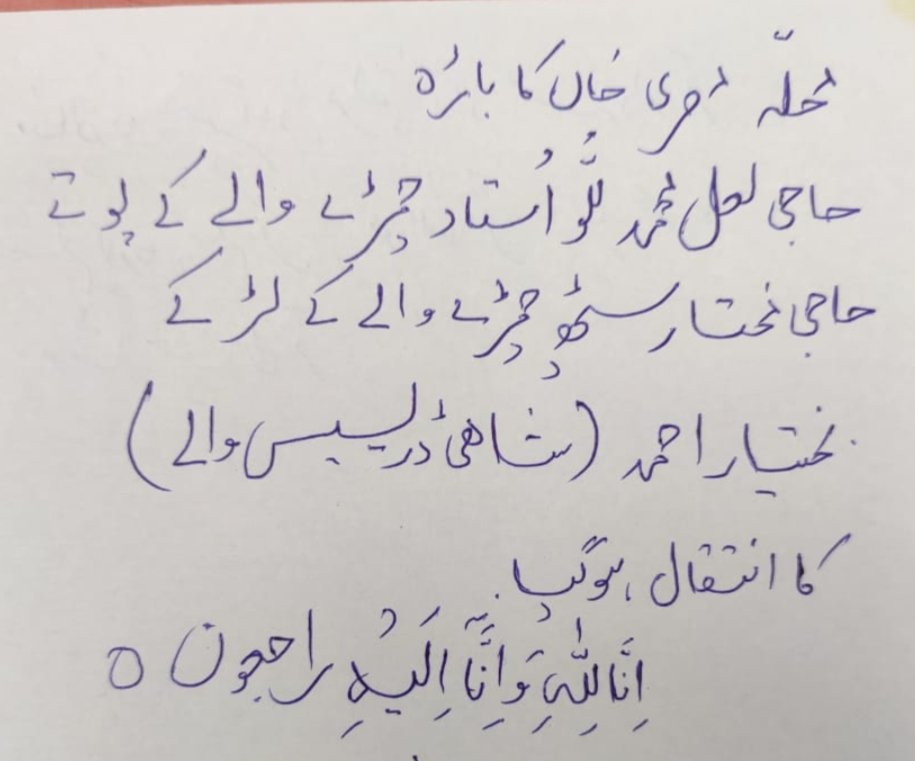 محلّہ نمری خاں کا باڑہ
حاجی لعل محمد للّو اُستاد چمڑے والے کے پوتے
حاجی مختار سیٹھ چمڑے والے کے لڑکے
بختیار احمد (شاھی ڈریسیس والے)
کا انتقال ہوگیا۔
اِنَّالِلّٰہِ وَاِنَّآ اِلَیْہِ راجعون ○